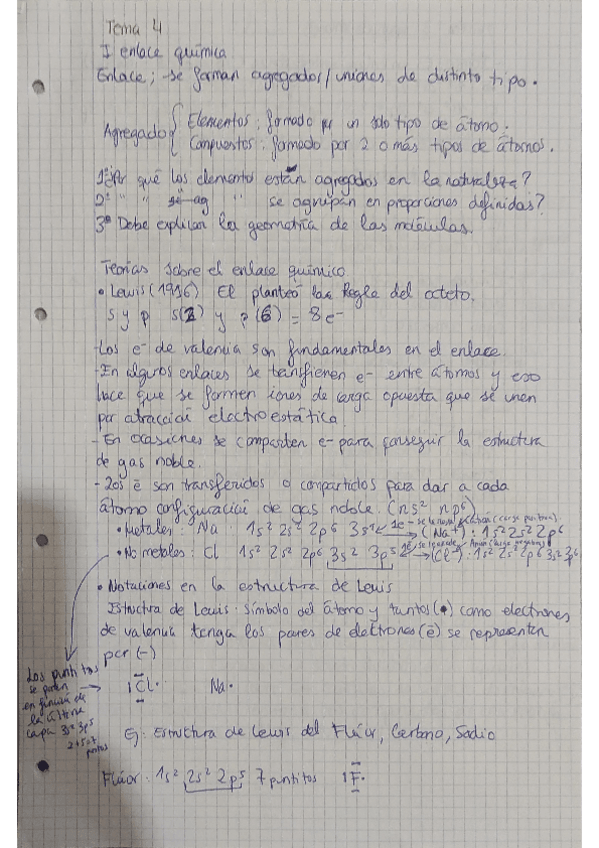 Tema 4
I enlace química
Enlace; -se forman agregados/uniones de distinto tipo.
Agregado { Elementos: formado por un solo tipo de átomo.
Compuestos: formado por 2 o más tipos de átomos.
1º ¿Por qué los elemento están agregados en la naturaleza?
2º " " " se agrupan en proporciones definidas?
3º Debe explicar la geometría de las moléculas.
Teorías sobre el enlace químico
• Lewis (1916) El planteó la Regla del octeto.
s y p s(2) y p(6) = 8e-
-Los e- de valencia son fundamentales en el enlace.
-En algunos enlaces se transfieren e- entre átomos y eso
hace que se formen iones de carga opuesta que se unen
por atracción electroestática.
-En ocasiones se comparten e- para conseguir la estructura
de gas noble.
-Los e- son transferidos o compartidos para dar a cada
átomo configuración de gas noble. (ns² np⁶)
• Metales: Na: 1s² 2s² 2p⁶ 3s¹ → (Na+): 1s² 2s² 2p⁶
• No metales: Cl 1s² 2s² 2p⁶ 3s² 3p⁵ → (Cl-): 1s² 2s² 2p⁶ 3s² 3p⁶
• Notaciones en la estructura de Lewis
Estructura de Lewis: símbolo del átomo y tantos (•) como electrones
de valencia tenga los pares de electrones (e-) se representan
por (-)
Los puntitos
se ponen →
en función de
la última
capa 3s² 3p⁵
2+5=7
puntos
|Cl· Na·
Ej: Estructura de Lewis del Flúor, Carbono, Sodio
Flúor: 1s² 2s² 2p⁵ 7 puntitos |F·